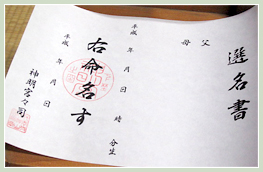 選名書
父
母
平成 年 月 日 時 分生
右命名す
平成 年 月 日
神明宮々司